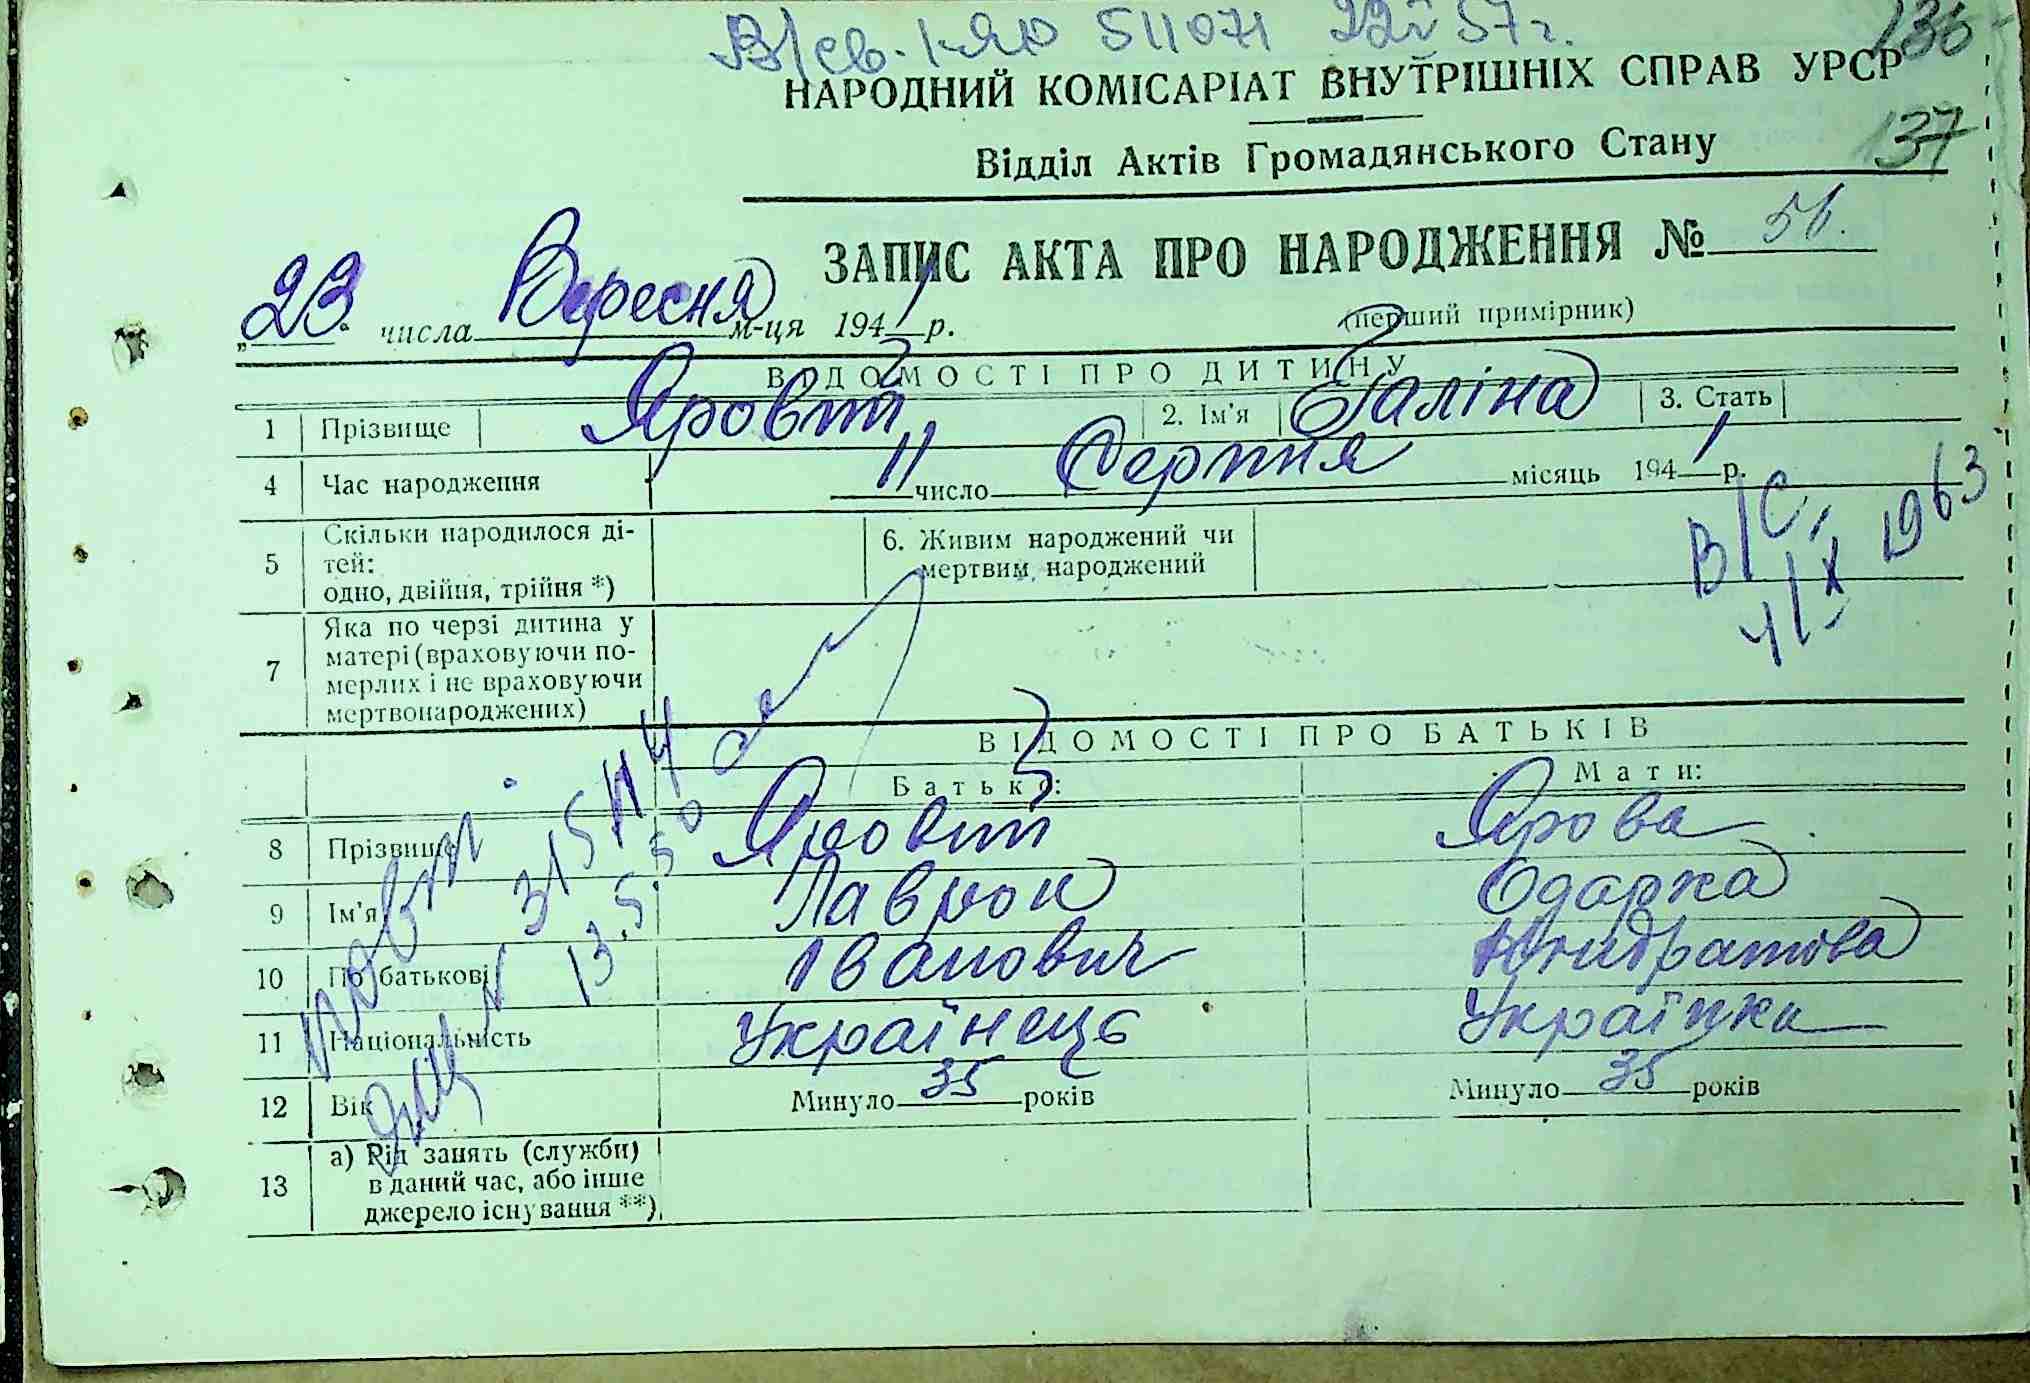 В/св. I-ЯЮ 511071 22 57 г.
136
НАРОДНИЙ КОМІСАРІАТ ВНУТРІШНІХ СПРАВ УРСР
137
Відділ Актів Громадянського Стану
ЗАПИС АКТА ПРО НАРОДЖЕННЯ № 56.
„23 числа Вересня м-ця 1941 р. (перший примірник)
ВІДОМОСТІ ПРО ДИТИНУ
1 Прізвище 2. Ім'я Галіна 3. Стать
4 Час народження 11 число Серпня місяць 1941 р.
5 Скільки народилося ді-
тей:
одно, двійня, трійня *)
6. Живим народжений чи
мертвим народжений
В/С, 4/X 1963
7 Яка по черзі дитина у
матері (враховуючи по-
мерлих і не враховуючи
мертвонароджених)
ВІДОМОСТІ ПРО БАТЬКІВ
Батько: Мати:
8 Прізвище Ярова
9 Ім'я Лаврон Одарка
10 По батькові Іванович
11 Національність Українець Українка
12 Вік Минуло 35 років Минуло 35 років
13 а) Рід занять (служби)
в даний час, або інше
джерело існування **)
повт.
N 315114
13.5.50